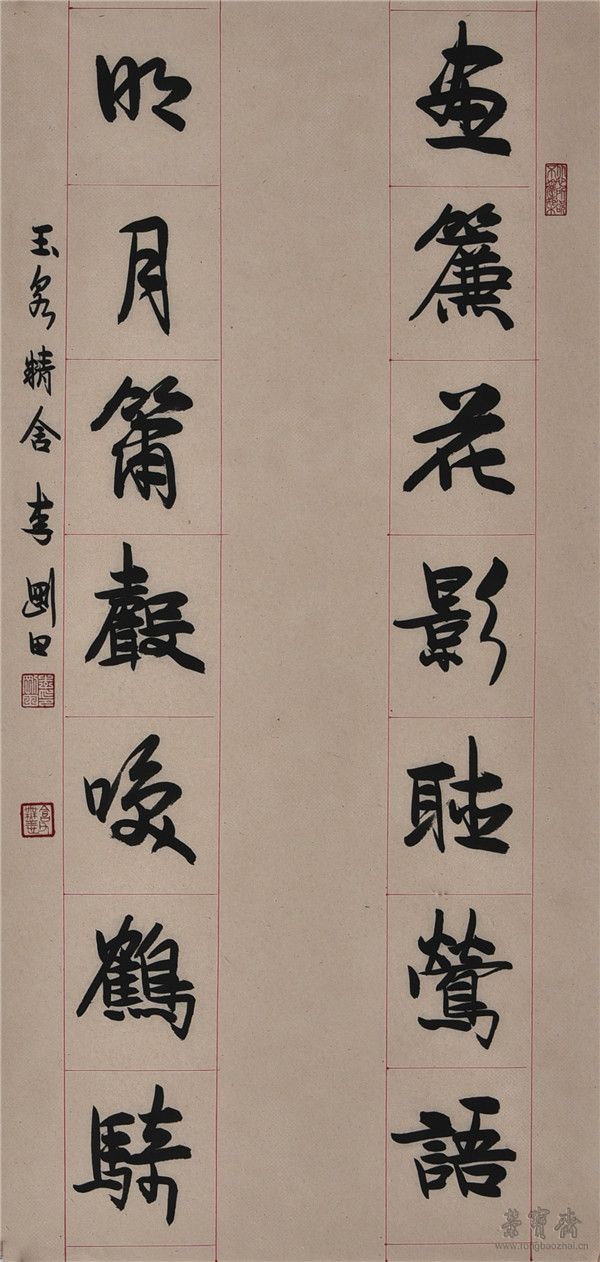 画簾花影聽鶯語
明月簫聲喚鶴騎
玉泉精舍李剛田
榮寶齋
www.rongbaozhai.cn